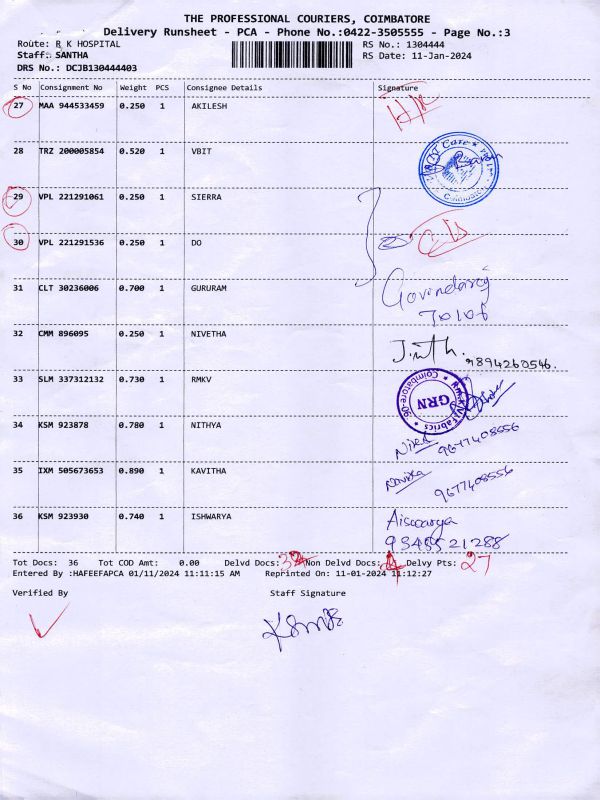 THE PROFESSIONAL COURIERS, COIMBATORE
Delivery Runsheet - PCA - Phone No.:0422-3505555 - Page No.:3
Route: R K HOSPITAL
RS No.: 1304444
Staff: SANTHA
RS Date: 11-Jan-2024
DRS No.: DCJB130444403
S No Consignment No Weight PCS Consignee Details Signature
27 MAA 944533459 0.250 1 AKILESH
28 TRZ 200005854 0.520 1 VBIT
29 VPL 221291061 0.250 1 SIERRA
30 VPL 221291536 0.250 1 DO
31 CLT 30236006 0.700 1 GURURAM
Govindaraj
70106
32 CMM 896095 0.250 1 NIVETHA
9894260546.
33 SLM 337312132 0.730 1 RMKV
GRN
34 KSM 923878 0.780 1 NITHYA
9677408556
35 IXM 505673653 0.890 1 KAVITHA
9677408556
36 KSM 923930 0.740 1 ISHWARYA
Aiswarya
9345521288
Tot Docs: 36 Tot COD Amt: 0.00 Delvd Docs: Non Delvd Docs: Delvy Pts: 27
Entered By :HAFEEFAPCA 01/11/2024 11:11:15 AM Reprinted On: 11-01-2024 11:12:27
Verified By Staff Signature